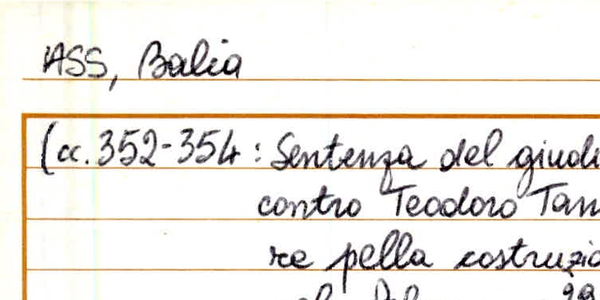 ASS, Balia
(cc. 352-354: Sentenza del giudi
contro Teodoro Tan
re pella costruzio